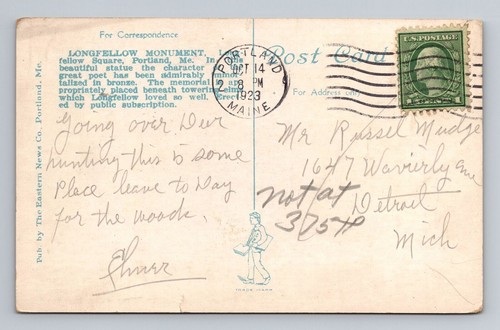 For Correspondence
LONGFELLOW MONUMENT,
fellow Square, Portland, Me. In this
beautiful statue the character of the
great poet has been admirably immor-
talized in bronze. The memorial is ap-
propriately placed beneath towering elms
which Longfellow loved so well. Erect-
ed by public subscription.
Post Card
For Address only
PORTLAND
OCT 14
8 PM
1923
MAINE
U.S. POSTAGE
Pub. by The Eastern News Co., Portland, Me.
Going over Deer
hunting this is some
Place leave to Day
for the woods.
Elmer
Mr Russel Mudge
1647 Waverly Ave
Detroit
Mich
not at
3754
TRADE MARK